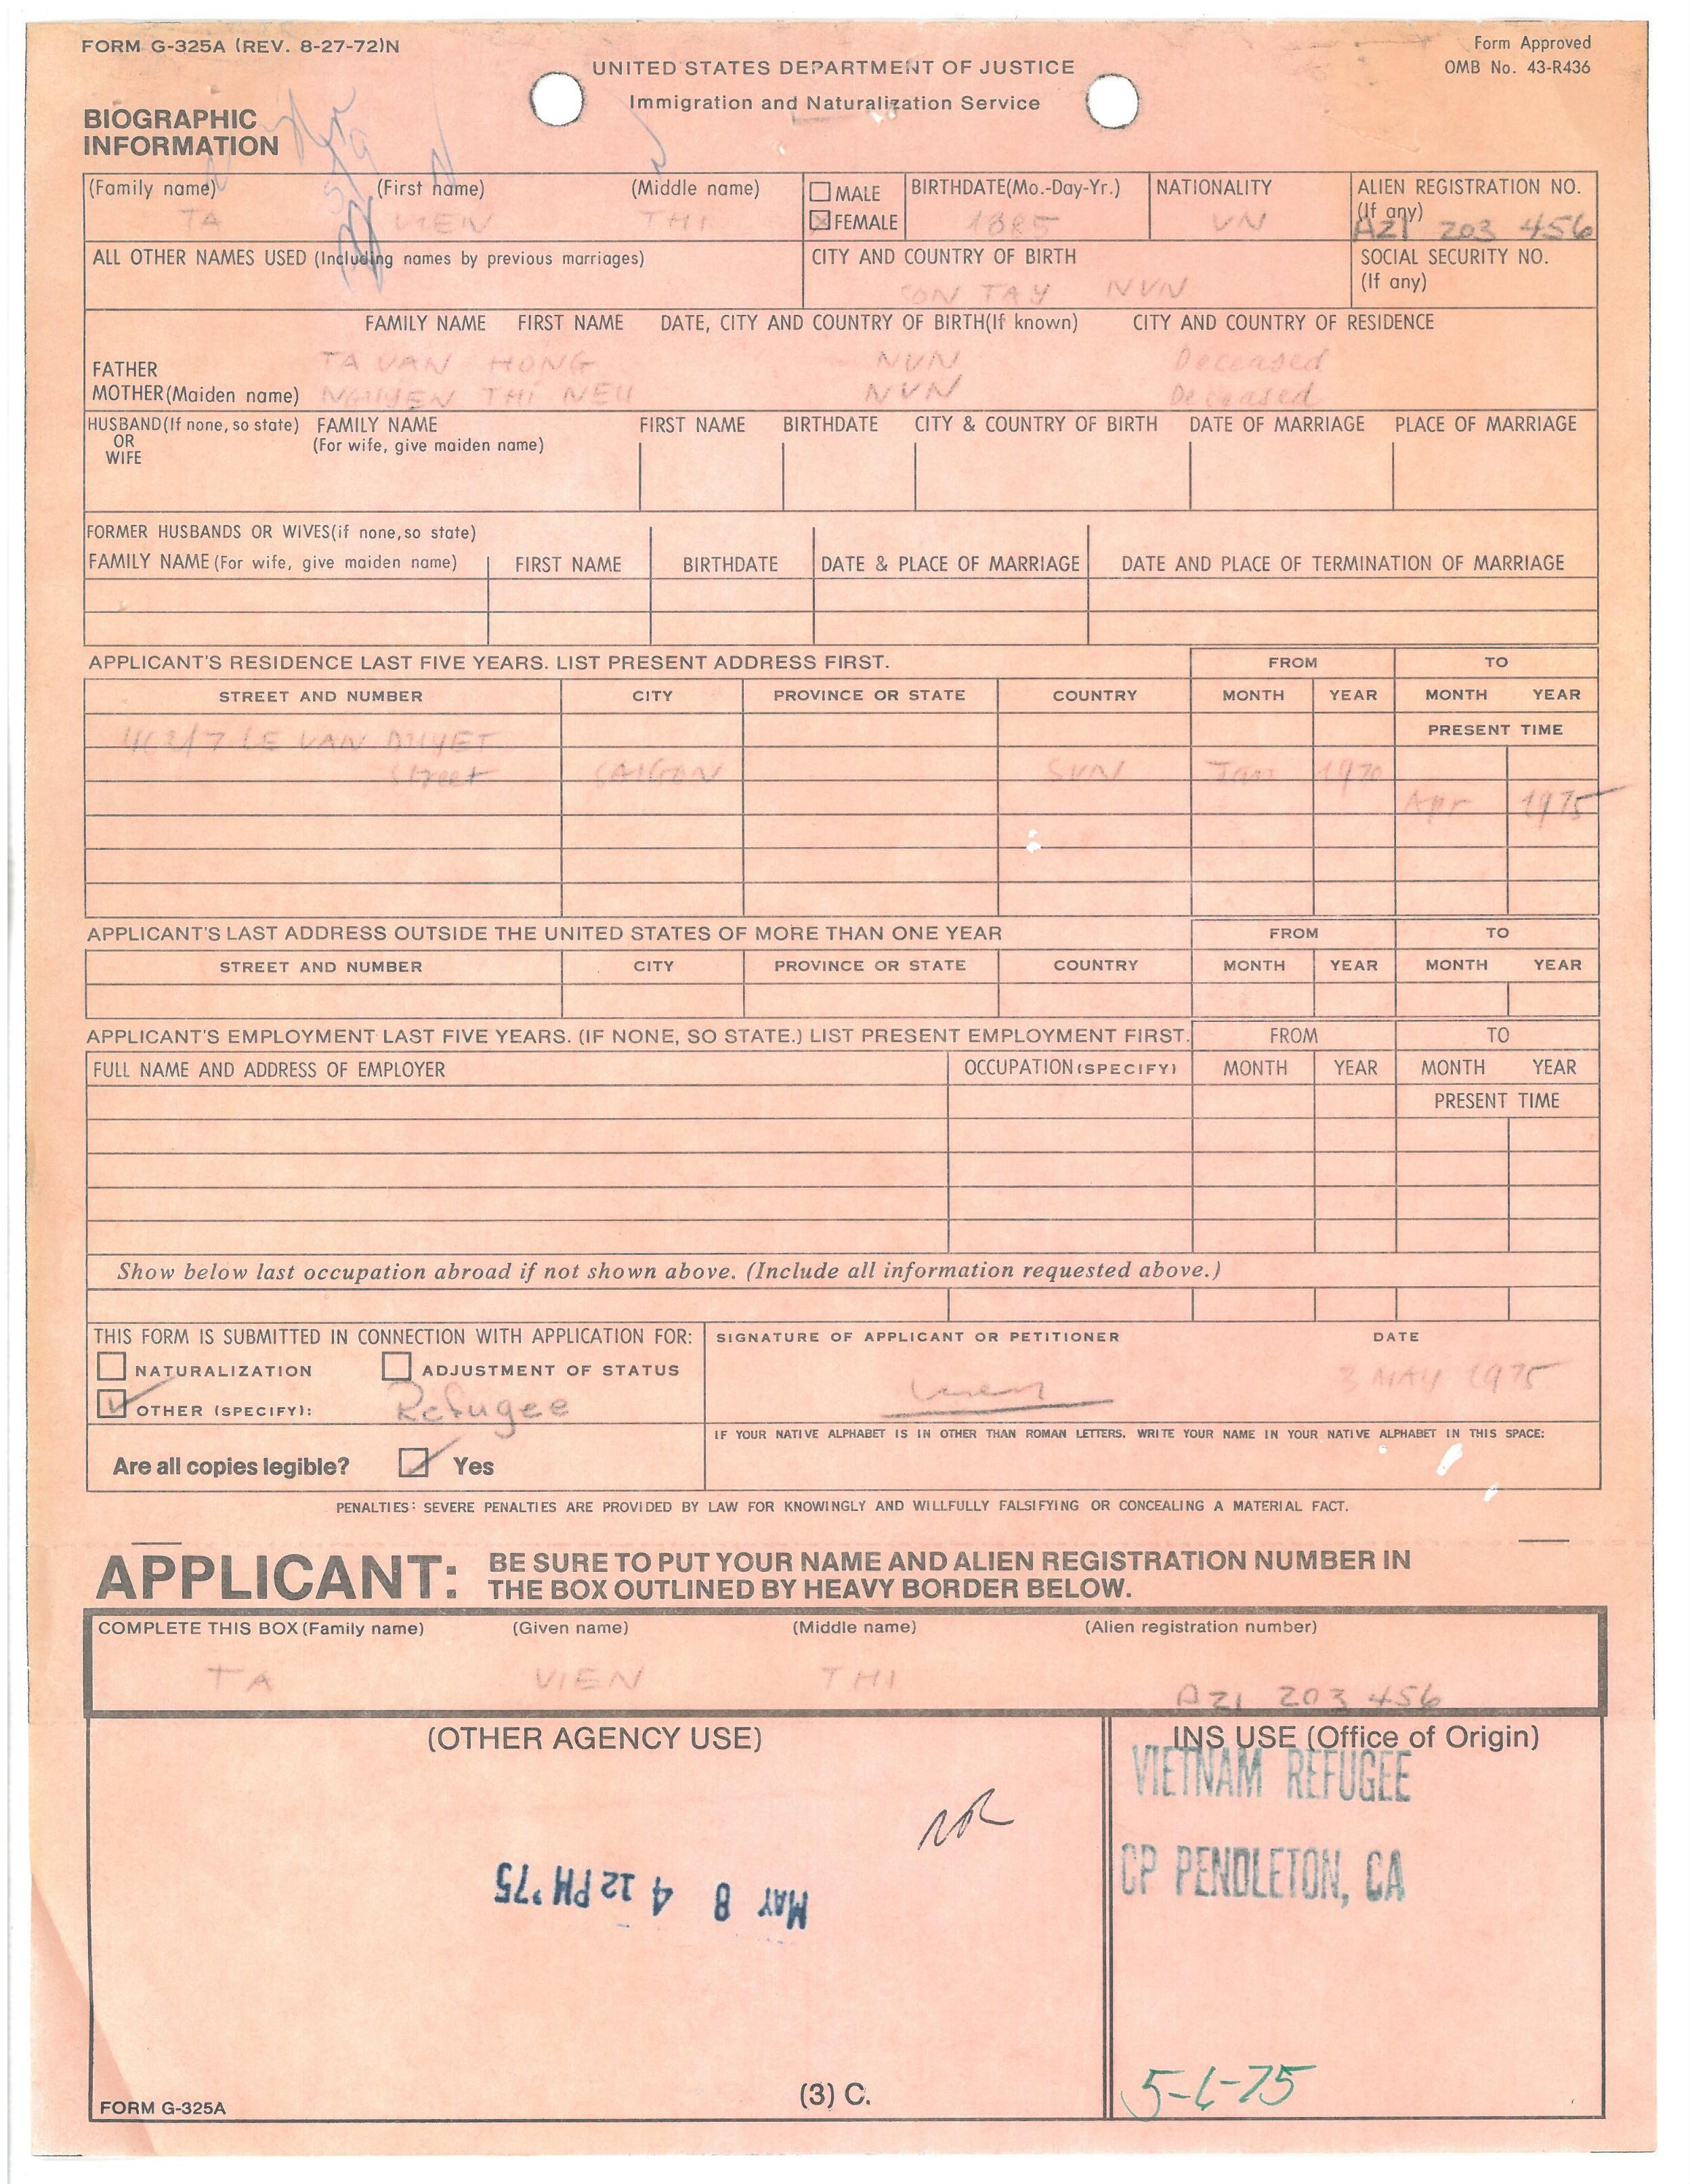 FORM G-325A (REV. 8-27-72)N
Form Approved
OMB No. 43-R436
UNITED STATES DEPARTMENT OF JUSTICE
Immigration and Naturalization Service
BIOGRAPHIC
INFORMATION
(Family name) (First name) (Middle name)
TA VIEN THI
MALE
FEMALE
BIRTHDATE(Mo.-Day-Yr.)
1885
NATIONALITY
VN
ALIEN REGISTRATION NO.
(If any)
A21 203 456
ALL OTHER NAMES USED (Including names by previous marriages)
CITY AND COUNTRY OF BIRTH
SON TAY NVN
SOCIAL SECURITY NO.
(If any)
FAMILY NAME FIRST NAME DATE, CITY AND COUNTRY OF BIRTH(If known) CITY AND COUNTRY OF RESIDENCE
FATHER TA VAN HONG NVN Deceased
MOTHER(Maiden name) NGUYEN THI NEU NVN Deceased
HUSBAND(If none, so state) FAMILY NAME FIRST NAME BIRTHDATE CITY & COUNTRY OF BIRTH DATE OF MARRIAGE PLACE OF MARRIAGE
OR (For wife, give maiden name)
WIFE
FORMER HUSBANDS OR WIVES(if none, so state)
FAMILY NAME (For wife, give maiden name) FIRST NAME BIRTHDATE DATE & PLACE OF MARRIAGE DATE AND PLACE OF TERMINATION OF MARRIAGE
APPLICANT'S RESIDENCE LAST FIVE YEARS. LIST PRESENT ADDRESS FIRST. FROM TO
STREET AND NUMBER CITY PROVINCE OR STATE COUNTRY MONTH YEAR MONTH YEAR
PRESENT TIME
LE VAN DUYET
Street SAIGON SVN Jan 1970
Apr 1975
APPLICANT'S LAST ADDRESS OUTSIDE THE UNITED STATES OF MORE THAN ONE YEAR FROM TO
STREET AND NUMBER CITY PROVINCE OR STATE COUNTRY MONTH YEAR MONTH YEAR
APPLICANT'S EMPLOYMENT LAST FIVE YEARS. (IF NONE, SO STATE.) LIST PRESENT EMPLOYMENT FIRST. FROM TO
FULL NAME AND ADDRESS OF EMPLOYER OCCUPATION (SPECIFY) MONTH YEAR MONTH YEAR
PRESENT TIME
Show below last occupation abroad if not shown above. (Include all information requested above.)
THIS FORM IS SUBMITTED IN CONNECTION WITH APPLICATION FOR:
NATURALIZATION ADJUSTMENT OF STATUS
OTHER (SPECIFY): Refugee
Are all copies legible? Yes
SIGNATURE OF APPLICANT OR PETITIONER DATE
Vien 3 MAY 1975
IF YOUR NATIVE ALPHABET IS IN OTHER THAN ROMAN LETTERS, WRITE YOUR NAME IN YOUR NATIVE ALPHABET IN THIS SPACE:
PENALTIES: SEVERE PENALTIES ARE PROVIDED BY LAW FOR KNOWINGLY AND WILLFULLY FALSIFYING OR CONCEALING A MATERIAL FACT.
APPLICANT: BE SURE TO PUT YOUR NAME AND ALIEN REGISTRATION NUMBER IN
THE BOX OUTLINED BY HEAVY BORDER BELOW.
COMPLETE THIS BOX (Family name) (Given name) (Middle name) (Alien registration number)
TA VIEN THI A21 203 456
(OTHER AGENCY USE)
INS USE (Office of Origin)
VIETNAM REFUGEE
CP PENDLETON, CA
NR
MAY 8 4 12 PM '75
5-6-75
(3) C.
FORM G-325A